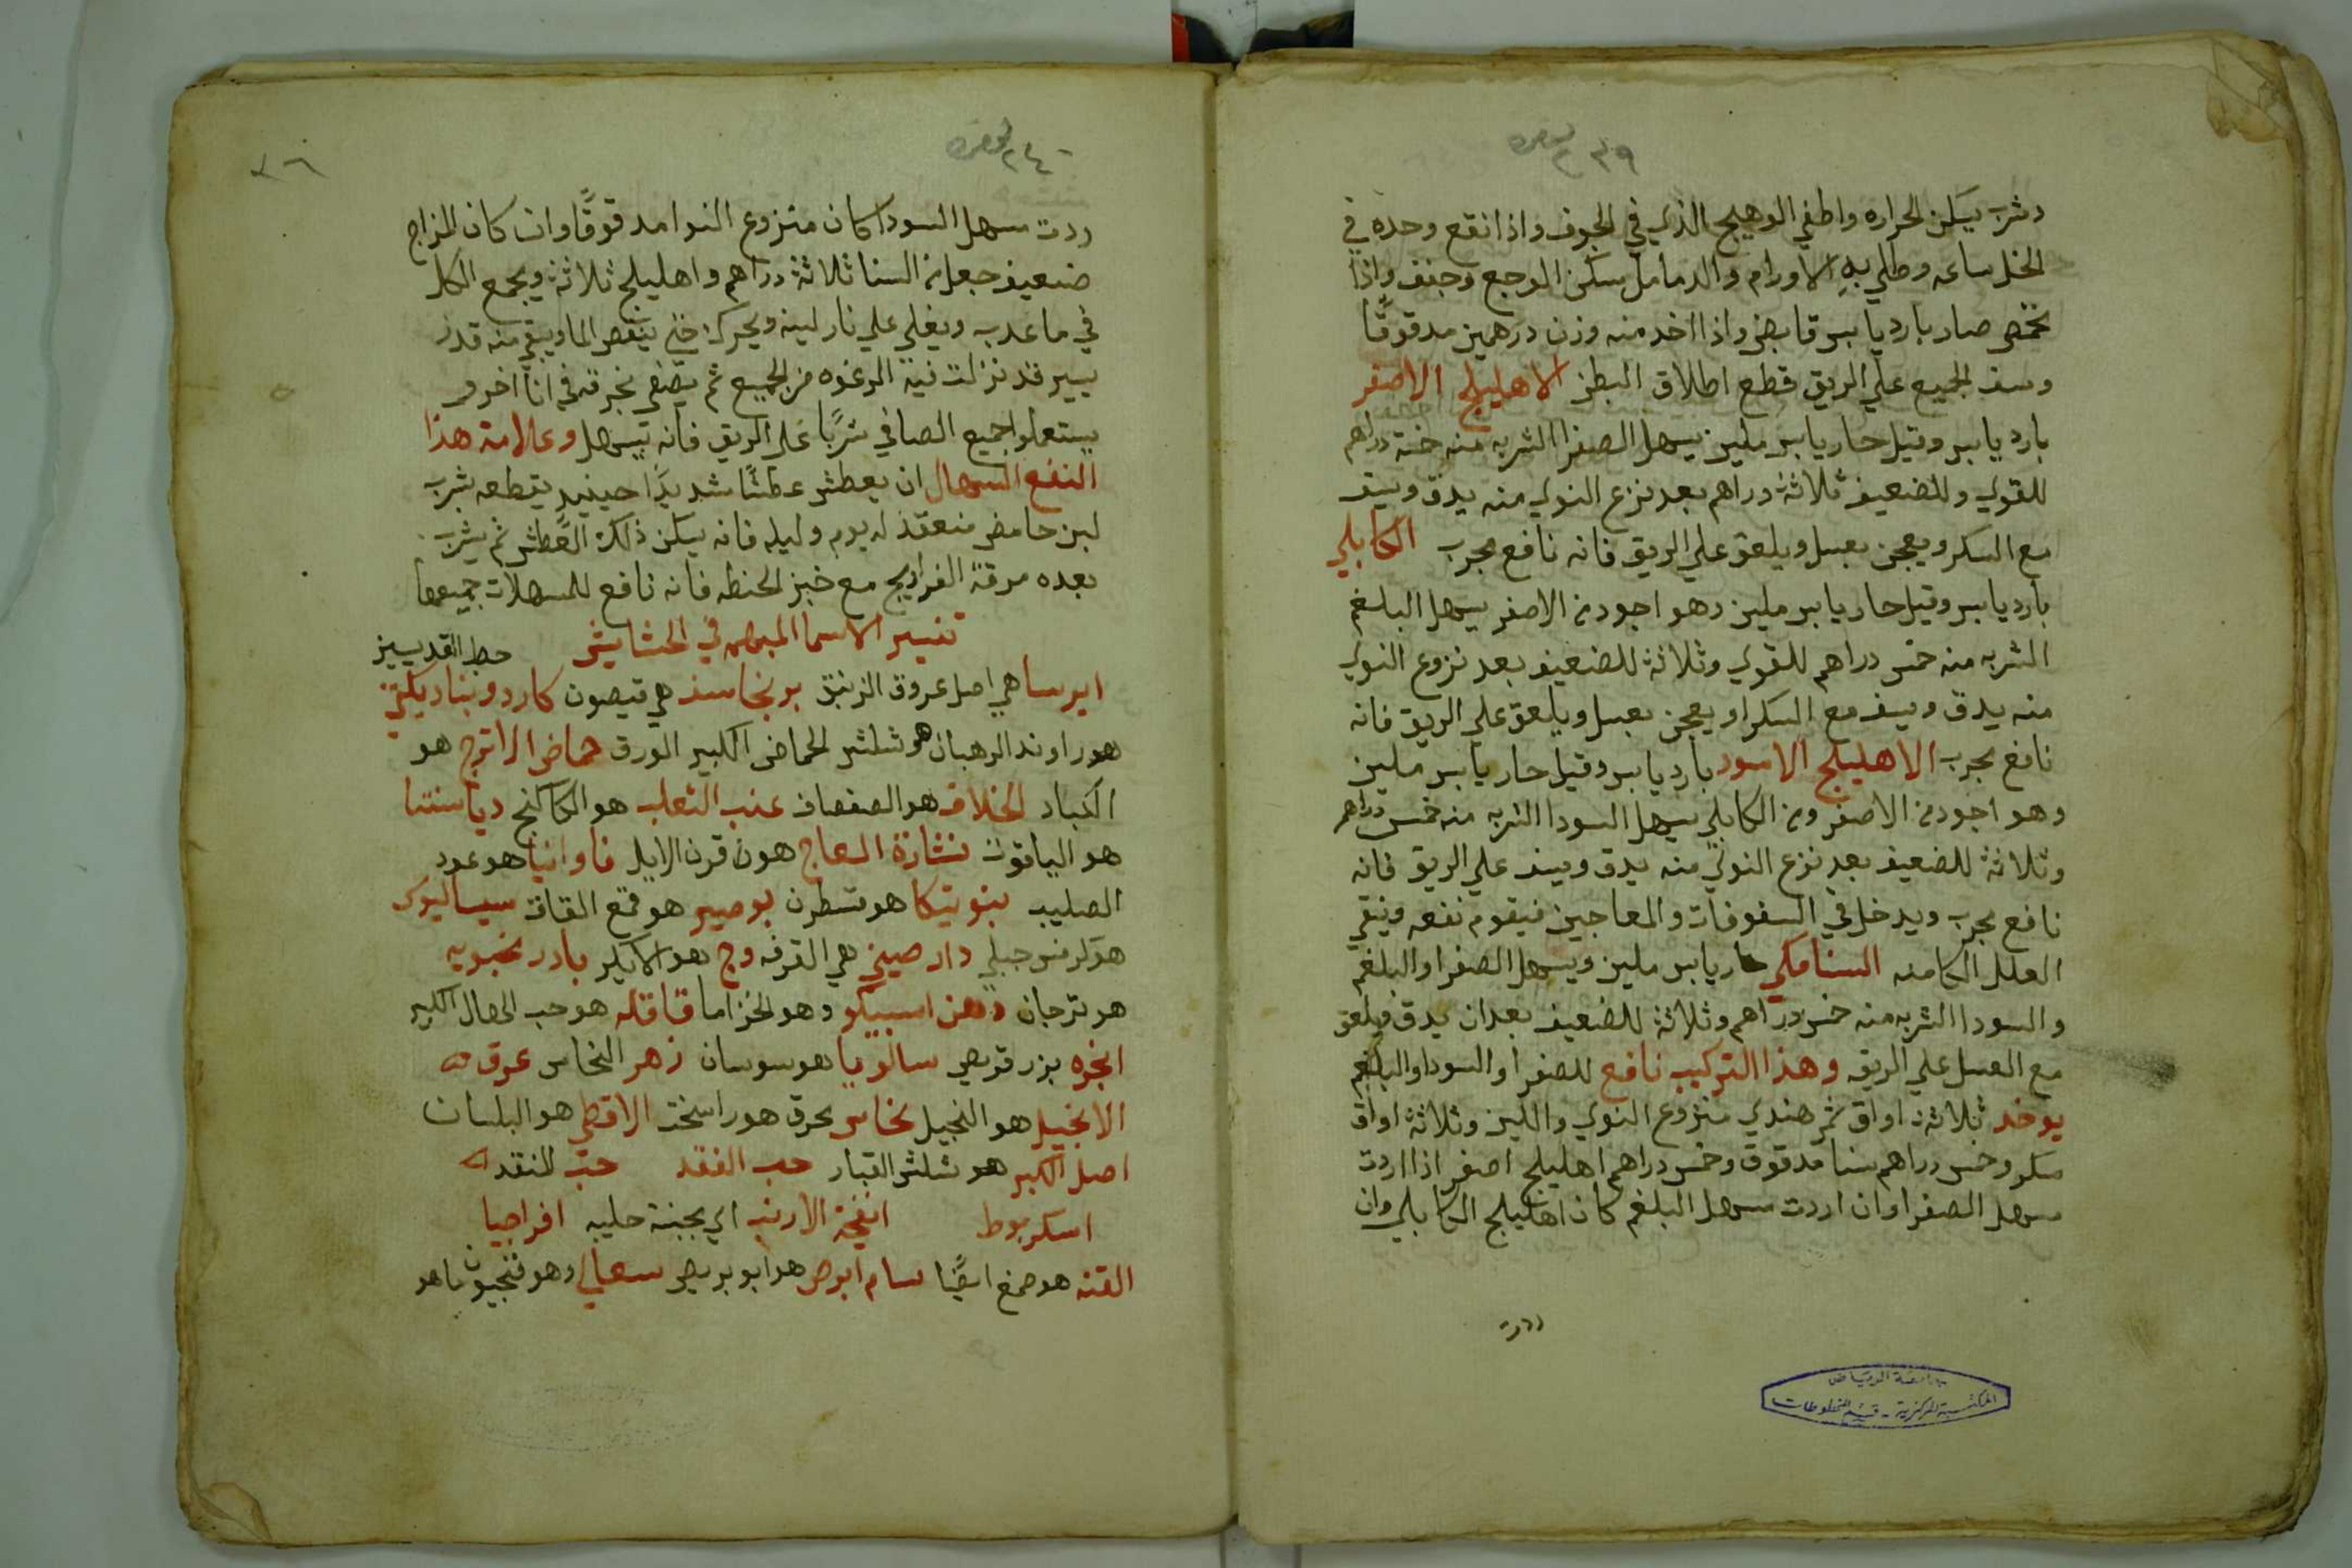 ٢٣٩
وشرب يسكن الحراره واطفي الوهيج الذي في الجوف واذا انقع وحده في
الخل ساعه وطلي به الاورام والدمامل سكن الوجع وجفف واذا
تحمص صار بارد يابس قابض واذا اخد منه وزن درهمين مدقوقًا
وسف الجميع علي الريق قطع اطلاق البطن الاهليلج الاصفر
بارد يابس وقيل حار يابس ملين يسهل الصفرا الشربه منه خمسة دراهم
للقوي وللضعيف ثلاثة دراهم بعد نزع النوي منه يدق ويسف
مع السكر ويعجن بعسل ويلعق علي الريق فانه نافع مجرب الكابلي
بارد يابس وقيل حار يابس ملين وهو اجود من الاصفر يسهل البلغم
الشربه منه خمس دراهم للقوي وثلاثة للضعيف بعد نزوع النوي
منه يدق ويسف مع السكر او يعجن بعسل ويلعق علي الريق فانه
نافع مجرب الاهليلج الاسود بارد يابس وقيل حار يابس ملين
وهو اجود من الاصفر ومن الكابلي يسهل السودا الشربه منه خمس دراهم
وثلاثة للضعيف بعد نزع النوي منه يدق ويسف علي الريق فانه
نافع مجرب ويدخل في السفوفات والمعاجين فيقوم نفعه وينقي
العلل الكامنه السنامكي حار يابس ملين ويسهل الصفرا والبلغم
والسودا الشربه منه خمس دراهم وثلاثة للضعيف بعد ان يدق ويلعق
مع العسل علي الريق وهذا التركيب نافع للصفرا والسودا والبلغم
يوخد ثلاثة اواق تمر هندي منزوع النوي والليف وثلاثة اواق
سكر وخمس دراهم سنا مدقوق وخمس دراهم اهليلج اصفر اذا اردت
سهل الصفرا وان اردت سهل البلغم كان اهليلج الكابلي وان
ردت
جامعة الرياض
المكتبة المركزية - قسم المخطوطات
٢٤٠
ردت سهل السودا كان منزوع النوا مدقوقًا وان كان المزاج
ضعيف جعل من السنا ثلاثة دراهم واهليلج ثلاثة ويجمع الكل
في ما عدب ويغلي علي نار لينه ويحرك حتي ينقص الما ويبقي منه قدر
يسير قد نزلت فيه الرغوه من الجميع ثم يصفي بخرقه في انا اخر و
يستعملوا جميع الصافي شربًا علي الريق فانه يسهل وعلامة هذا
النفع السهال ان يعطش عطشًا شديدًا حينيد يقطعه بشرب
لبن حامض منعقد له يوم وليله فانه يسكن ذلك العطش ثم يشرب
بعده مرقة الفراريج مع خبز الحنطه فانه نافع للمسهلات جميعها
تفسير الاسما المبهمه في الحشايش
ايرسا هي اصل عروق الزنبق برنجاسف هي قيصون
هو راوند الرهبان هو شلش الحماض الكبير الورق حماض الاترج هو
الكباد الخلاف هو الصفصاف عنب الثعلب هو الكاكنج
هو الياقوت نشارة العاج هو من قرن الايل فاوانيا هو عود
الصليب هو قسطرن بوصير هو قمع القناة سيساليوس
هو كرفس جبلي دار صيني هي القرفه وج هو الايكر بادرنجبويه
هو ترجان دهن اسبيكو وهو الخزاما قاقله هو حب الهال الكبير
انجره بزر قريص سالوبيا هو سوسان زهر النحاس عرق
الانجيل هو النجيل نحاس محرق هو راسخت الاقطي هو البلسان
اصل الكبر هو شلش القبار حب الفقد حب
اسكربوط انفحة الارنب اي بجبنة حليبه افراجيا
القنه هو صمغ ايضًا سام ابرص هو ابو بريص سعالي وهو فنجيون ما هو